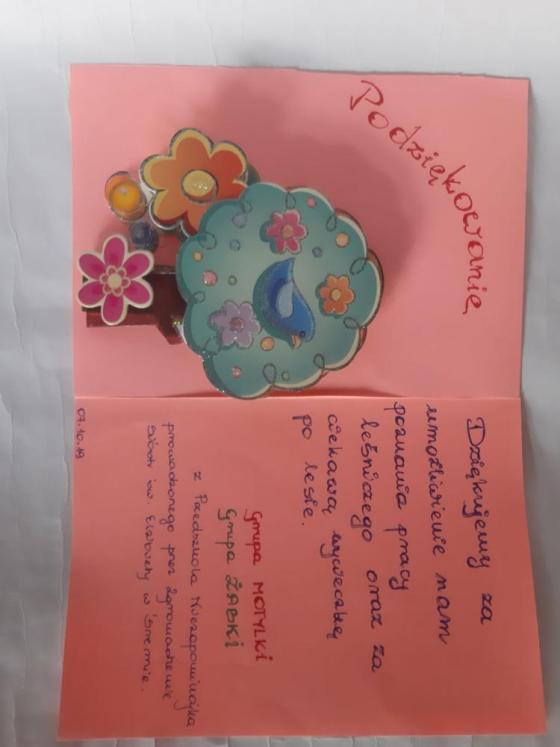 Podziękowanie
Dziękujemy za
umożliwienie nam
poznania pracy
leśniczego oraz za
ciekawą wycieczkę
po lesie.
Grupa MOTYLKI
Grupa ŻABKI
z Przedszkola Niezapominajka
prowadzonego przez Zgromadzenie
Sióstr św. Elżbiety w Śremie.
07.10.19